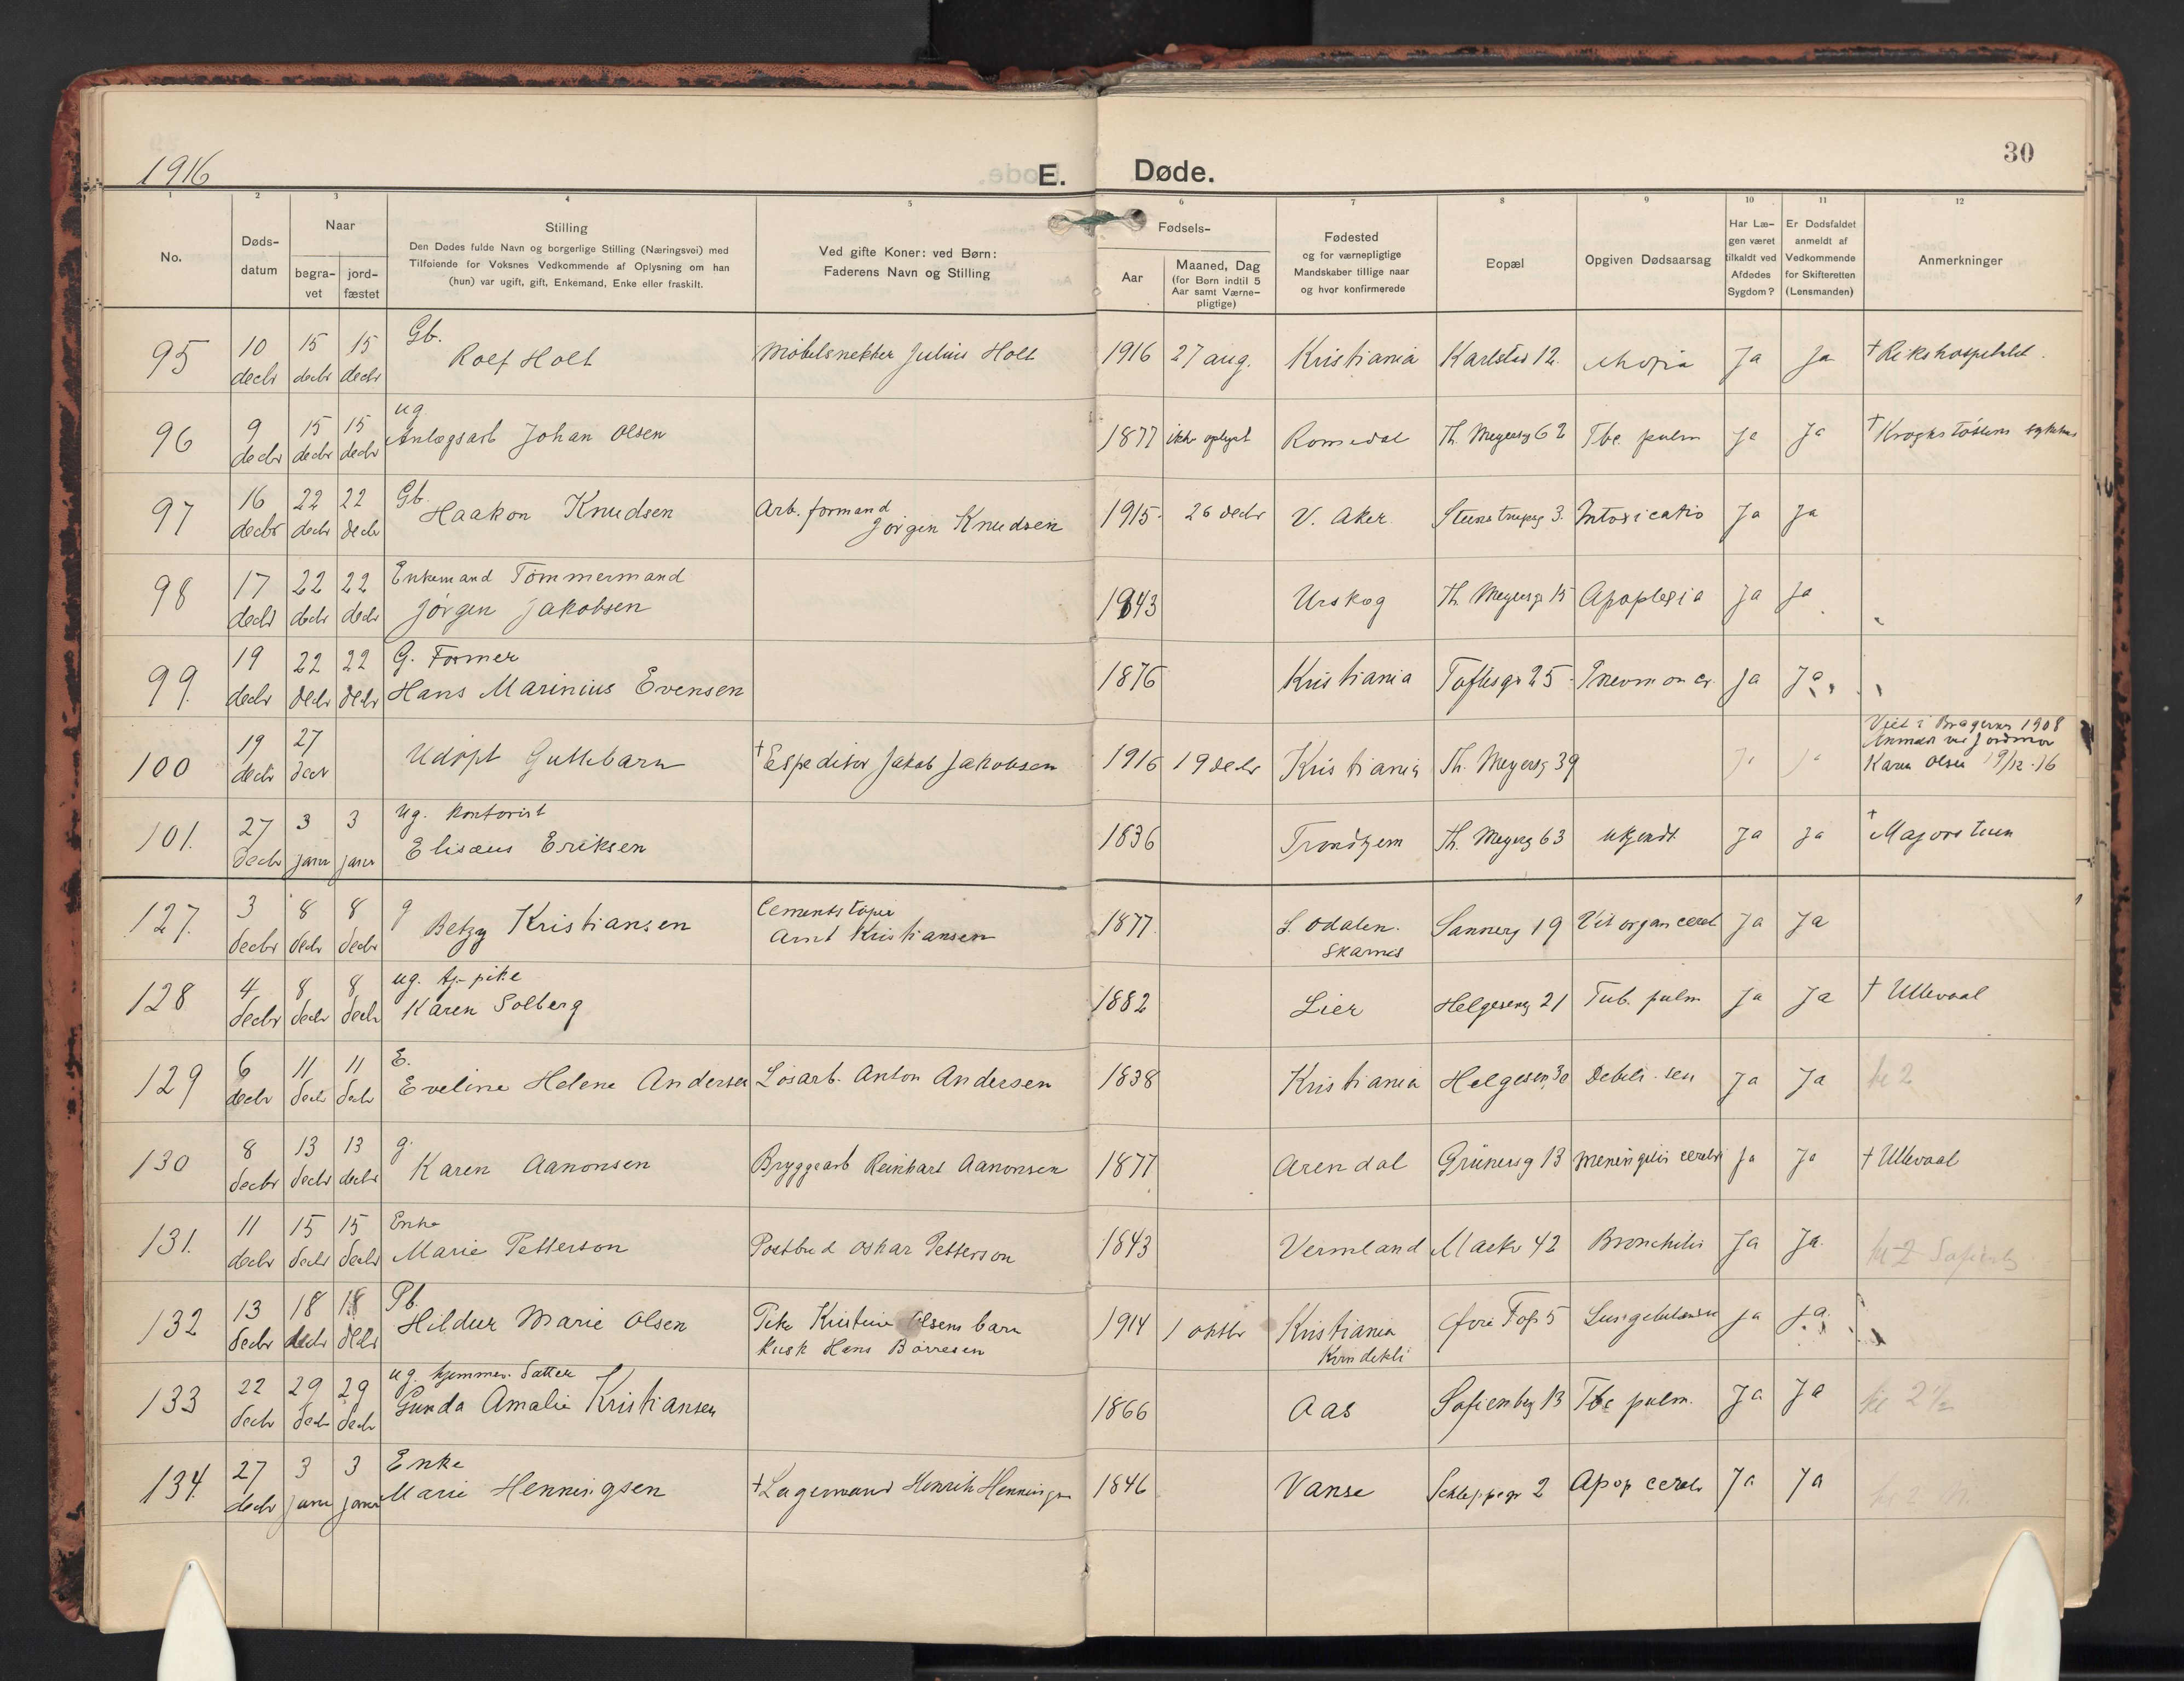 1916
E. Døde.
30
1 2 3 4 5 6 7 8 9 10 11 12
No.
Døds-
datum
Naar
begra-
vet
jord-
fæstet
Stilling
Den Dødes fulde Navn og borgerlige Stilling (Næringsvei) med
Tilføiende for Voksnes Vedkommende af Oplysning om han
(hun) var ugift, gift, Enkemand, Enke eller fraskilt.
Ved gifte Koner: ved Børn:
Faderens Navn og Stilling
Fødsels-
Aar
Maaned, Dag
(for Børn indtil 5
Aar samt Værne-
pligtige)
Fødested
og for værnepligtige
Mandskaber tillige naar
og hvor konfirmerede
Bopæl
Opgiven Dødsaarsag
Har Læ-
gen været
tilkaldt ved
Afdødes
Sygdom?
Er Dødsfaldet
anmeldt af
Vedkommende
for Skifteretten
(Lensmanden)
Anmerkninger
95 10 decbr 15 decbr 15 decbr Gb.
Rolf Holt Møbelsnekker Julius Holt 1916 27 aug. Kristiania Karlstad 12. Ja Ja † Rikshospitalet.
96 9 decbr 15 decbr 15 decbr ug
Anlægsarb Johan Olsen 1877 ikke oplyst Romedal Th. Meyersg 62 Tbc. pulm Ja Ja
97 16 decbr 22 decbr 22 decbr Gb.
Haakon Knudsen Arb. formand
Jørgen Knudsen 1915. 26 decbr V. Aker. Steenstrupsg 3. Intoxicatio Ja Ja
98 17 decbr 22 decbr 22 decbr Enkemand Tømmermand
Jørgen Jakobsen 1843 Urskog Th Meyersg 15 Apoplexia Ja Ja
99. 19 decbr 22 decbr 22 decbr G. Former
Hans Marinius Evensen 1876 Kristiania Toftesgt 25 Pneumon cr. Ja Ja
100 19 decbr 27 decbr
Udøpt Guttebarn † Espeditør Jakob Jakobsen 1916 19 decbr Kristiania Th. Meyersg 39 Ja Ja Viet i Bragernes 1908
Anmeldt ved Jordmor
Karen Olsen 19/12-16
101. 27 decbr 3 janr 3 janr ug. kontorist
Elisæus Eriksen 1836 Trondhjem Th. Meyersg 63 ukjendt Ja Ja † Majorstuen
127. 3 decbr 8 decbr 8 decbr g
Betzy Kristiansen Cementstøper
Arnt Kristiansen 1877. S. Odalen.
Skarnes Sannerg 19 Vit organ cord Ja Ja
128 4 decbr 8 decbr 8 decbr ug. tj-pike
Karen Solberg 1882 Lier Helgesensg 21 Tub. pulm Ja Ja † Ullevaal
129 6 decbr 11 decbr 11 decbr E.
Eveline Helene Andersen Løsarb. Anton Andersen 1838 Kristiania Helgesen 30 Debili. sen Ja Ja
130 8 decbr 13 decbr 13 decbr g.
Karen Aanonsen Bryggearb Reinhart Aanonsen 1877 Arendal Grünersg 13 Meningitis cerebr Ja Ja † Ullevaal
131. 11 decbr 15 decbr 15 decbr Enke
Marie Petterson Postbud Oskar Petterson 1843 Vermland Markv 42 Bronchitis Ja Ja.
132 13 decbr 18 decbr 18 decbr Pb.
Hildur Marie Olsen Pike Kristine Olsens barn
Kusk Hans Børresen 1914 1 oktbr Kristiania Ja Ja.
133 22 decbr 29 decbr 29 decbr ug. hjemmev. datter
Gunda Amalie Kristiansen 1866 Aas Sofienbg 13 Tbc pulm. Ja Ja
134. 27 decbr 3 janr 3 janr Enke
Marie Henningsen † Lagermand Henrik Henningsen 1846 Vanse Schleppegr 2 Apop cereb Ja Ja